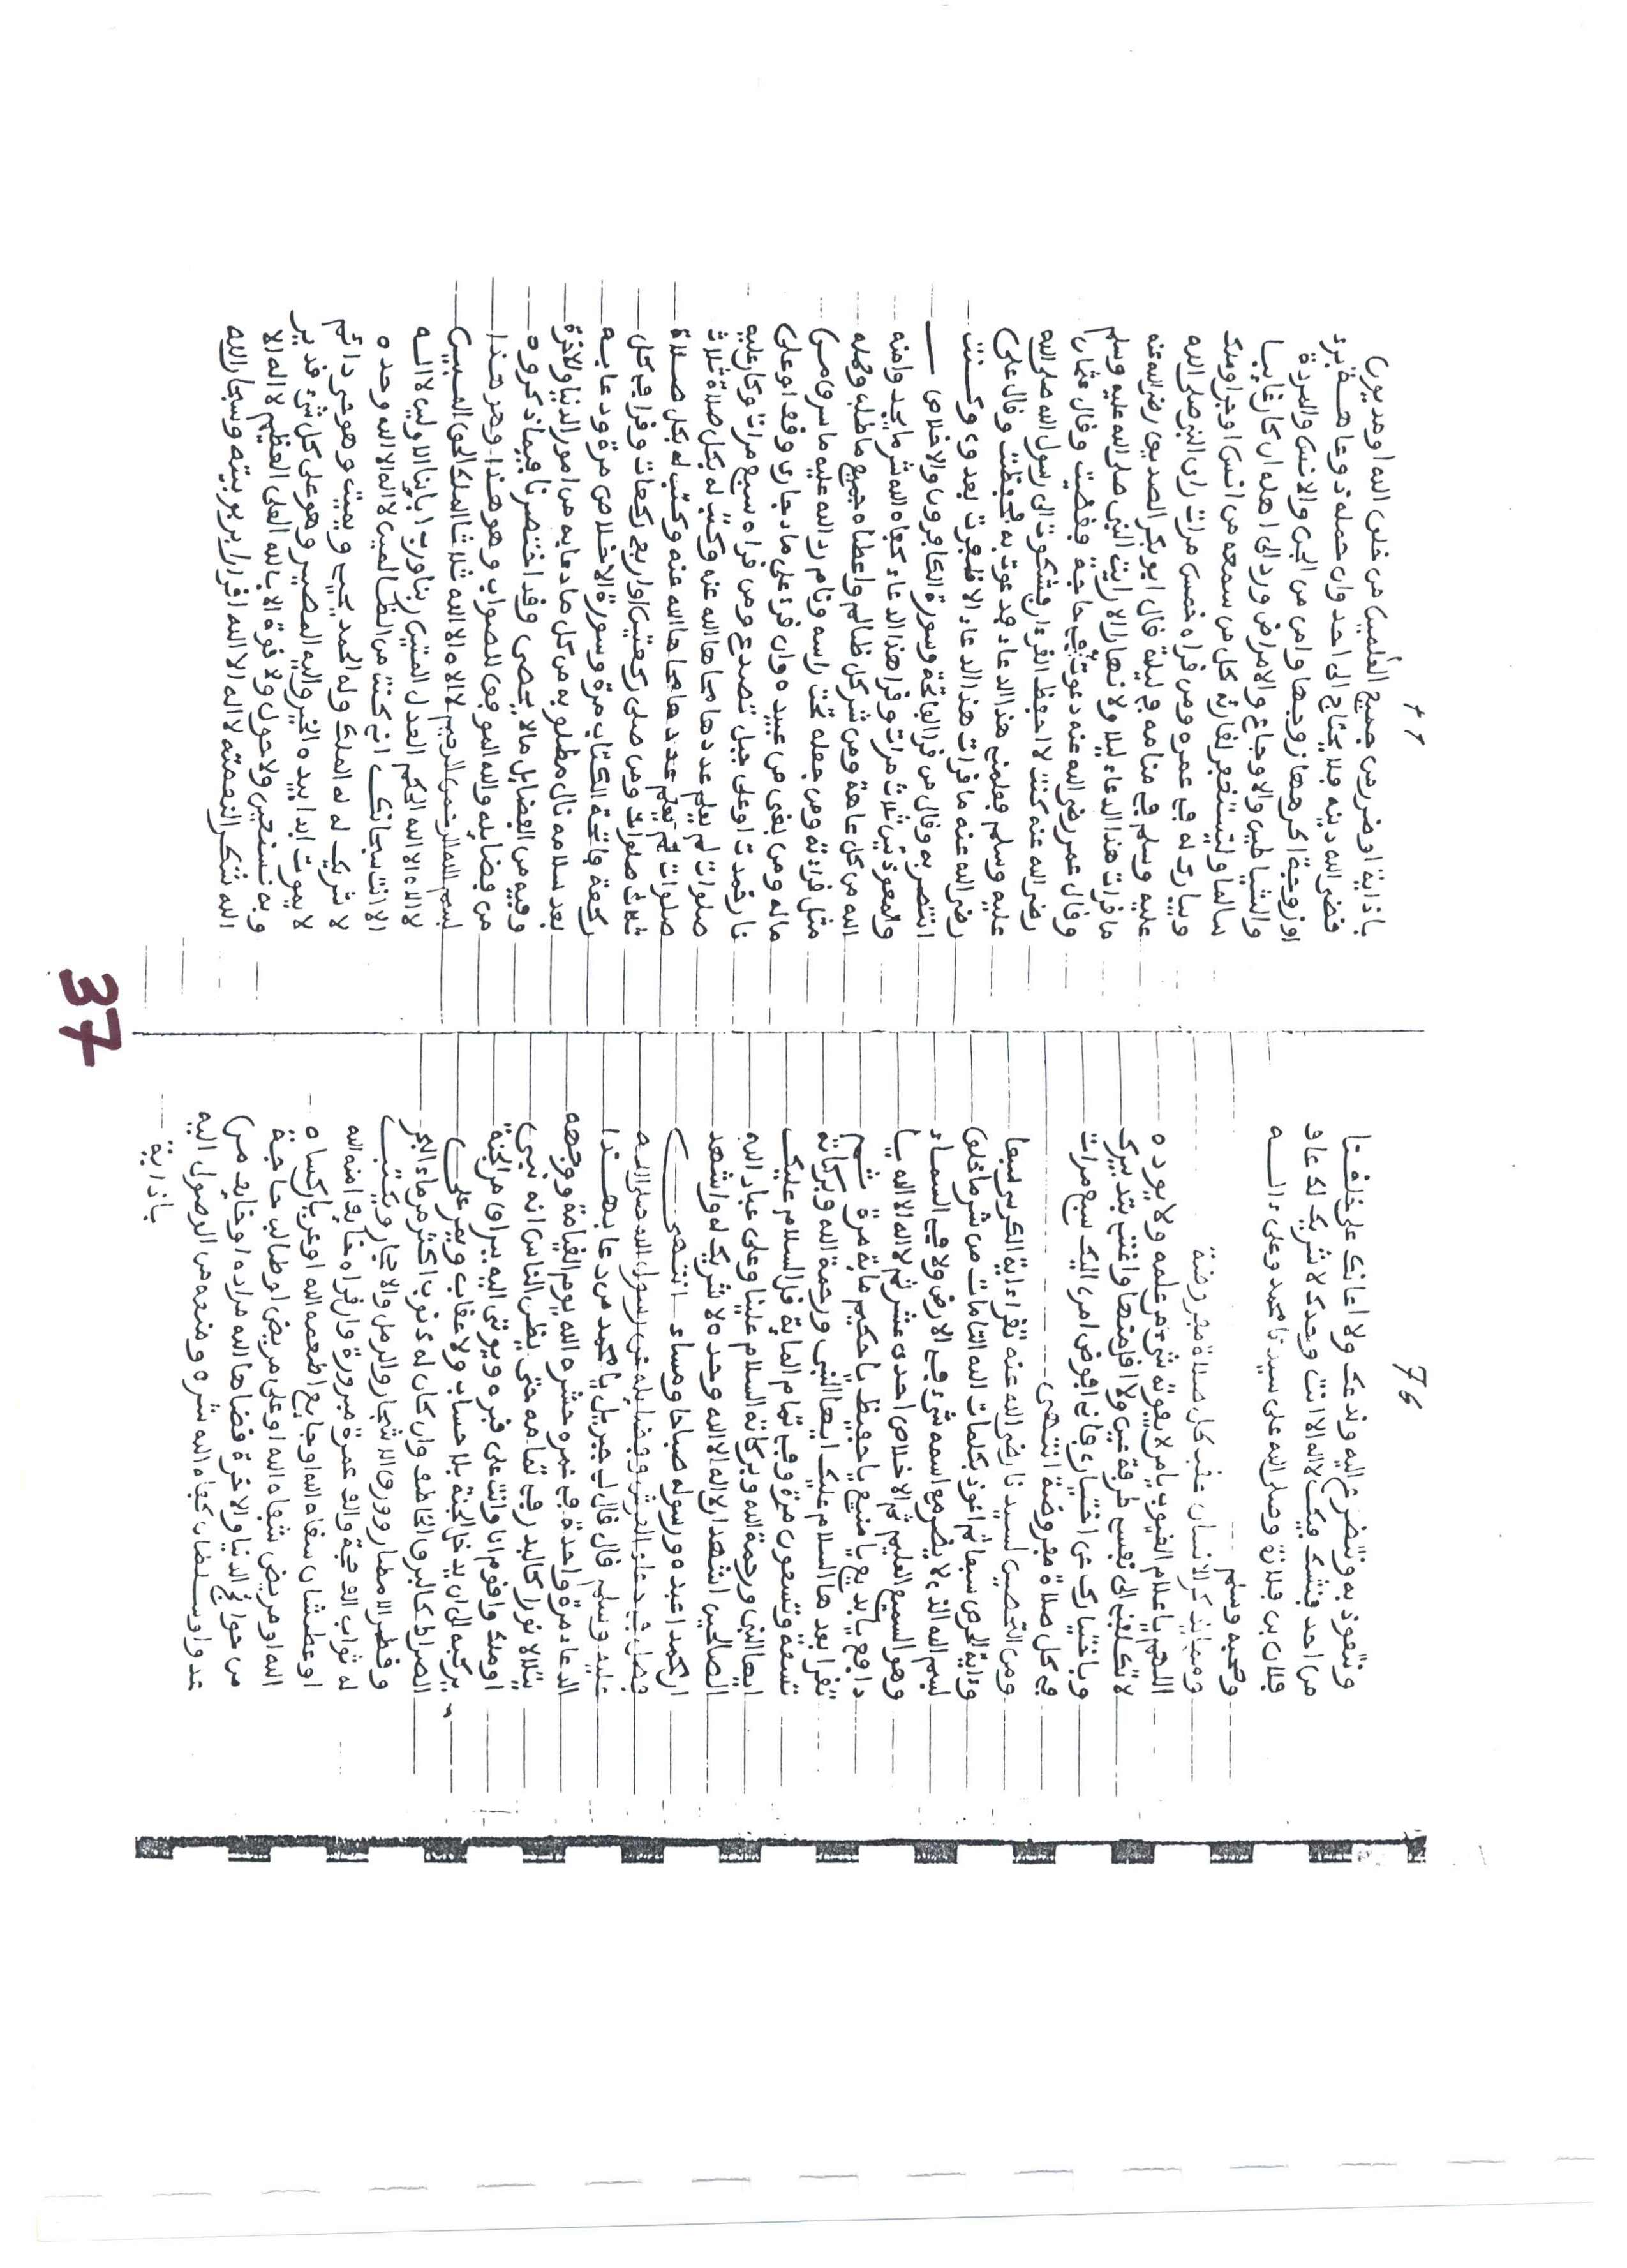 76
ونتعوذ به ونتضرع اليه وندعك ولا اعانك على خلفتنا
من احد فنشك فيك لا اله الا انت وحدك لا شريك لك عاو
فلان بن فلانة وصلى الله على سيدنا محمد وعلى ءالـــه
وصحبه وسلم
ومما يذكر الانسان عقب كل صلاة مفروضة
اللهم يا علام الغيوب يا من لا يفوته شيء من علمه ولا يوده
لا تكلني الى نفسي طرفة عين ولا اقل منها واغنني بتدبيرك
وباختيارك عن اختياري فاني افوض امري اليك سبع مرات
في كل صلاة مفروضة انتهى
ومن التحصين لسيدنا رضي الله عنه تقرا ءاية الكرسي سبعا
وءاية الحرص سبعا ثم اعوذ بكلمات الله التامات من شر ما خلق
بسم الله الذي لا يضر مع اسمه شيء في الارض ولا في السماء
وهو السميع العليم ثم الاخلاص احدى عشر ثم لا اله الا الله يا
دافع يا بديع يا منيع يا حفيظ يا حكيم ماية مرة ثم
تقرا بعدها السلام عليك ايها النبي ورحمة الله وبركاته
تسعة وتسعون مرة وفي تمام الماية قل السلام عليك
ايها النبي ورحمة الله وبركاته السلام علينا وعلى عباد الله
الصالحين اشهد ان لا اله الا الله وحده لا شريك له واشهد
ان محمدا عبده ورسوله صباحا ومساء انتهى
فصل في دعاء العرش وفضايله عن رسول الله صلى الله
عليه وسلم قال قال لي جبريل يا محمد من دعا بهــذا
الدعاء مرة واحدة في عمره حشره الله يوم القيامة ووجهه
يتلالا نورا كالبدر في تمامه حتى يظن الناس انه نبي
او ملك واقوم انا وانت على قبره ويوتى اليه ببراق من الجنة
يركبه الى ان يدخل الجنة بلا حساب ولا عقاب ويمر على
الصراط كالبرق الخاطف وان كان له ذنوب اكثر من ماء البحر
وقطر الامطار وورق الاشجار والرمل والاحجار ويكتب
له ثواب الف حجة والف عمرة مبرورة وان قراه خايف امنه الله
او عطشان سقاه الله او جايع اطعمه الله او عريان كساه
الله او مريض شفاه الله او على مريض او طالب حاجة
من حوايج الدنيا والاخرة قضاها الله مراده او خايف من
عدو او سلطان كفاه الله شره ومنعه من الوصول اليه
باذاية
77
باذاية او ضر من جميع العلمين من خلق الله او مديون
قضى الله دينه فلا يحتاج الى احد وان حملة ذو عاهــة برئ
او زوجة اكرهها زوجها وامن من الجن والانس والمردة
والشياطين والاوجاع والامراض ورد الى اهله ان كان غايبا
سالما ويستغفر لقارئه كل من سمعه من انس او جن او ملك
ويبارك له في عمره ومن قراه خمس مرات راى النبي صلى الله
عليه وسلم في منامه في ليلة قال ابو بكر الصديق رضي الله عنه
ما قرات هذا الدعاء ليلا ولا نهارا الا رايت النبي صلى الله عليه وسلم
وقال عمر رضي الله عنه دعوت في حاجة فقضيت وقال عثمان
رضي الله عنه كنت لا احفظ القرءان فشكوت الى رسول الله صلى الله
عليه وسلم فعلمني هذا الدعاء فدعوت به فحفظت وقال علي
رضي الله عنه ما قرات هذا الدعاء الا ظفرت بعدوي وكـــنت
انتصر به وقال من قرا الفاتحة وسورة الكافرون والاخلاص
والمعوذتين ثلاث مرات وقرا هذا الدعاء كفاه الله شر ما يجد وامنه
الله من كل عاهة ومن شر كل ظالم واعطاه جميع ما طلبه وممله
مثل قراءته ومن جعله تحت راسه ونام رد الله عليه ما سرق من
ماله ومن بغى من عبيده وان قرئ على ماء جاري وقف او على
نار خمدت او على جبل تصدع ومن قراه سبع مرات وكان عليه
صلوات لم يعلم عددها محاها الله عنه وكتب له بكل صلاة ثلاث
صلوات لم يعلم عددها محاها الله عنه وكتب له بكل صــلاة
ثلاث صلوات ومن صلى ركعتين او اربع ركعات وقرا في كل
ركعة فاتحة الكتاب مرة وسورة الاخلاص مرة ودعا بــه
بعد سلامه نال مطلوبه من كل ما دعا به من امور الدنيا والاخرة
وفيه من الفضايل ما لا يحصى وقد اختصرنا فيما ذكروه
من فضايله والله الموفق للصواب وهو هــذا وهو هــذا
بسم الله الرحمن الرحيم لا اله الا الله ثلاثا الملك الحق المبين
لا اله الا الله الحكم العدل المتين ربنا ورب ءابائنا الاولين لا الــه
الا انت سبحانك اني كنت من الظالمين لا اله الا الله وحده
لا شريك له له الملك وله الحمد يحيي ويميت وهو حي دائم
لا يموت ابدا بيده الخير واليه المصير وهو على كل شيء قدير
وبه نستعين ولا حول ولا قوة الا بالله العلي العظيم لا اله الا
الله شكرا لنعمته لا اله الا الله اقرارا بربوبيته وسبحان الله
37